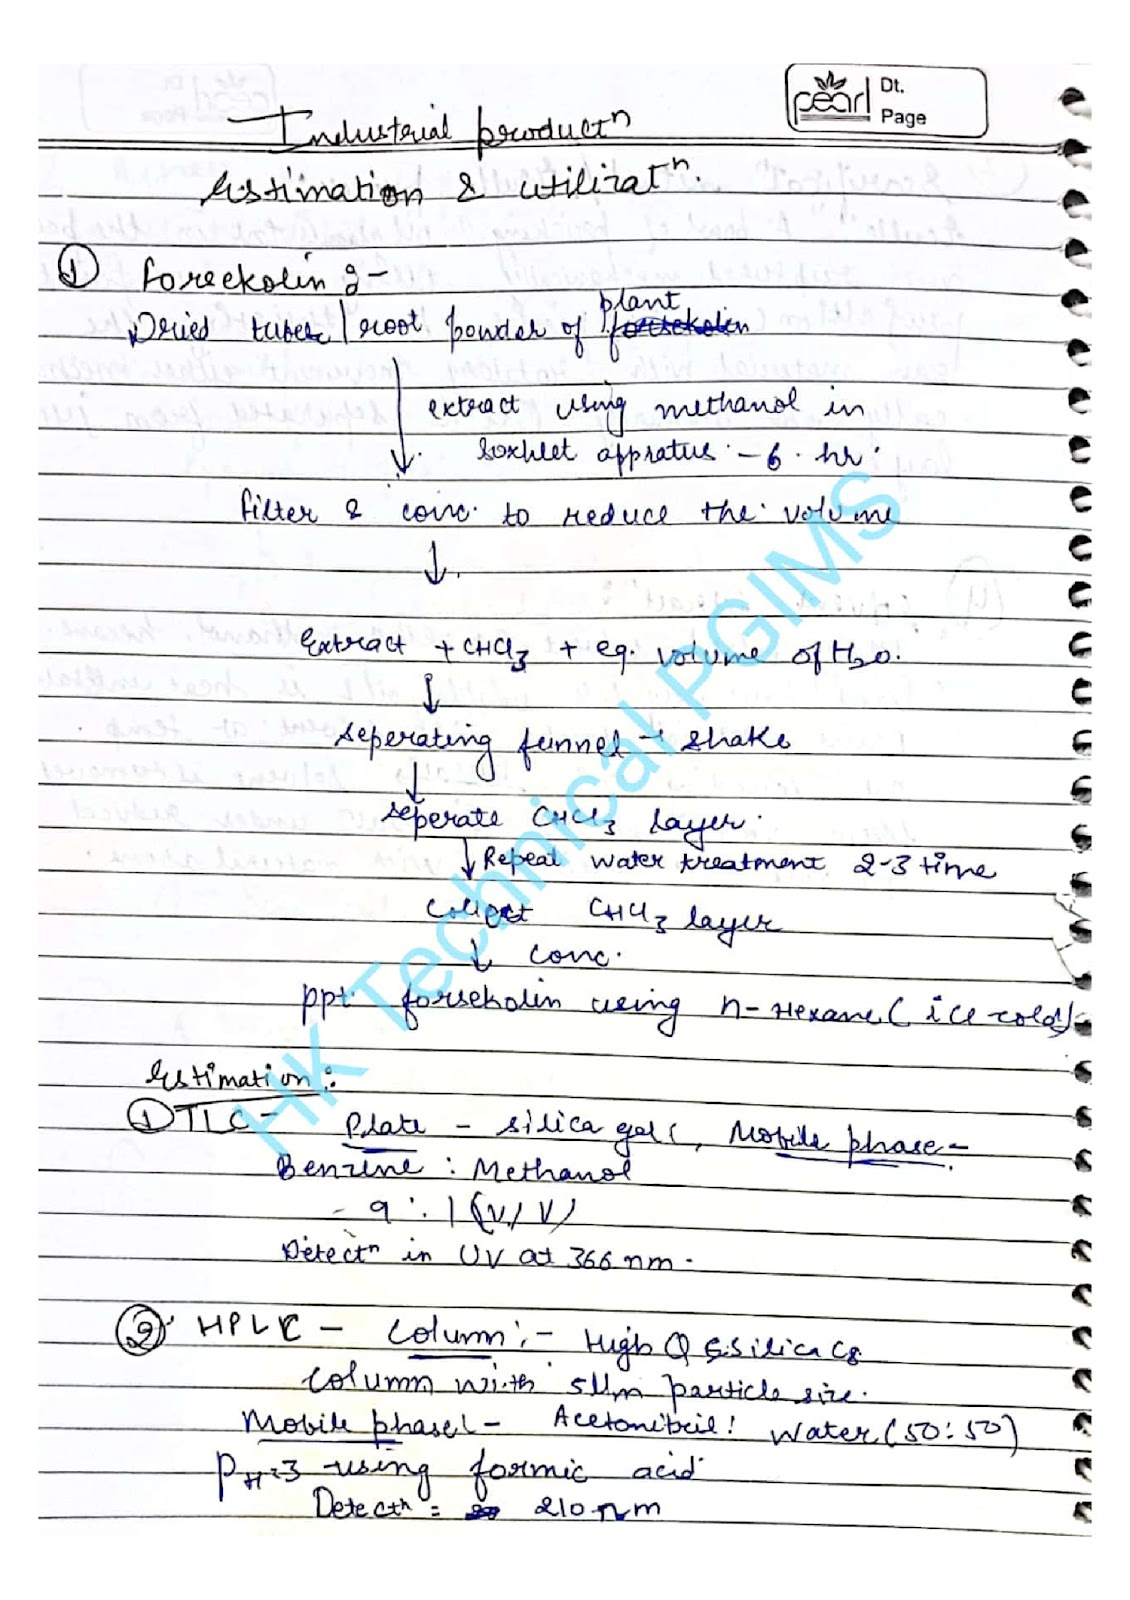 pearl Dt.
Page
Industrial productⁿ
Estimation & utilizatⁿ.
① Forsekolin :-
Dried tuber / root powder of plant
extract using methanol in
soxhlet appratus - 6 hr.
filter & conc. to reduce the volume
↓
Extract + CHCl3 + eq. volume of H2O.
↓
Seperating funnel → shake
↓
Seperate CHCl3 layer.
↓ Repeat water treatment 2-3 time
Collect CHCl3 layer
↓ conc.
ppt. forsekolin using n-Hexane (ice cold)
Estimation :
① TLC - Plate - silica gel, Mobile phase -
Benzine : Methanol
- 9 : 1 (V/V)
Detectⁿ in UV at 366 nm.
② HPLC - Column :- High Q silica C8
column with 5 μm particle size.
Mobile phase - Acetonitril : Water (50:50)
PH=3 using formic acid
Detectⁿ = 210 nm
HK Technical PGIMS